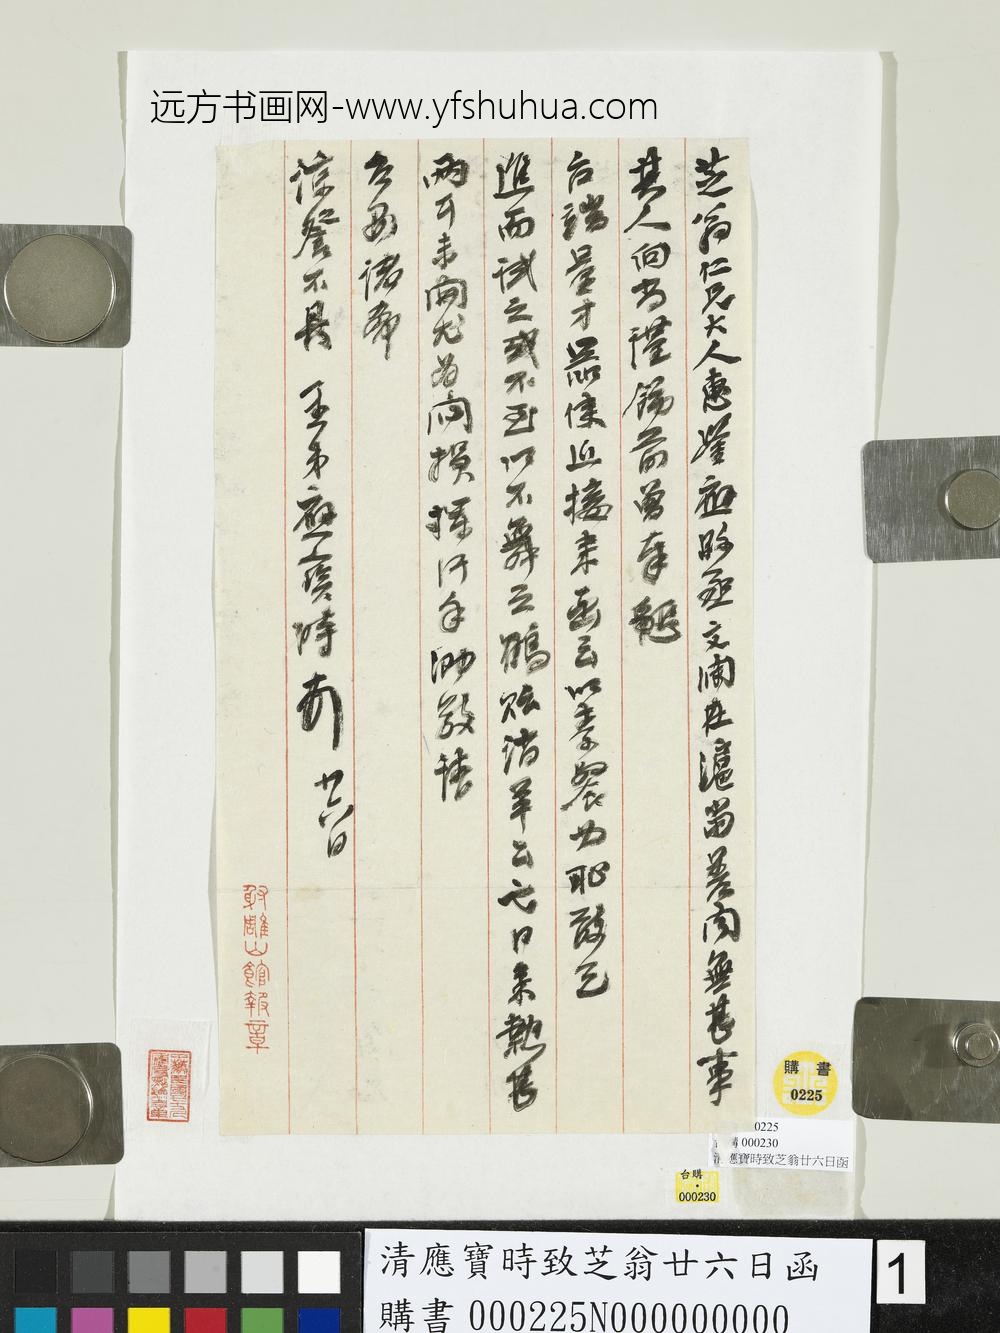 远方书画网-www.yfshuhua.com
芝翁仁兄大人惠鑒應政丞文瀾在滬當差間無甚事
其人向尚謹飭前曾奉懇
台端量才器使近接來函云以素餐為恥改乞
進而試之或不至以不舞之鶴貽誚羊公也日來熱甚
兩耳未開尤為悶損揮汗手泐敬請
台安諸希
諒詧不具 玉弟應寶時頓 廿六日
射雕山館報章
購書
0225
0225
000230
清應寶時致芝翁廿六日函
台購
000230
清應寶時致芝翁廿六日函
購書000225N000000000
1